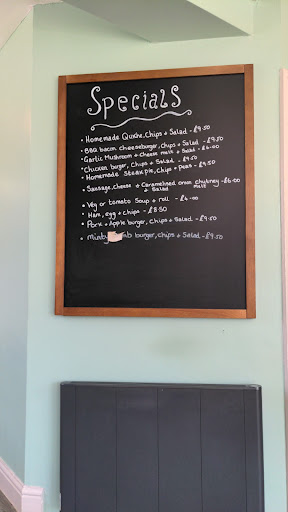 Specials
• Homemade Quiche, Chips + Salad - £9.50
• BBQ bacon cheeseburger, chips + Salad - £9.50
• Garlic Mushroom + Cheese melt + Salad - £6.00
• Chicken burger, Chips + Salad - £9.50
• Homemade Steak pie, Chips + peas - £9.50
• Sausage, cheese + Caramelised onion chutney melt + Salad - £6.00
• Veg or tomato Soup + roll - £4.00
• Ham, egg + chips - £8.50
• Pork + Apple burger, Chips + Salad - £9.50
• burger, chips + Salad - £9.50